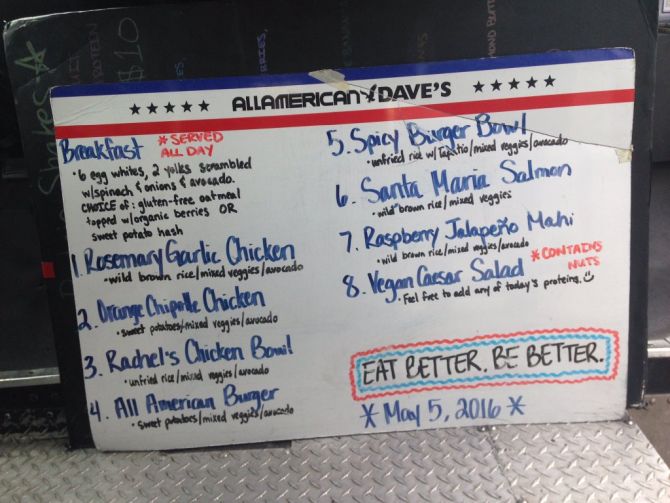 Shakes
PROTEIN
$10
ALLAMERICAN DAVE'S
Breakfast *SERVED ALL DAY
• 6 egg whites, 2 yolks scrambled
w/spinach & onions & avocado.
CHOICE of: gluten-free oatmeal
topped w/organic berries OR
sweet potato hash
1. Rosemary Garlic Chicken
• wild brown rice/mixed veggies/avocado
2. Orange Chipotle Chicken
• sweet potatoes/mixed veggies/avocado
3. Rachel's Chicken Bowl
• unfried rice/mixed veggies/avocado
4. All American Burger
• sweet potatoes/mixed veggies/avocado
5. Spicy Burger Bowl
• unfried rice w/Tapatio/mixed veggies/avocado
6. Santa Maria Salmon
• wild brown rice/mixed veggies
7. Raspberry Jalapeño Mahi
• wild brown rice/mixed veggies/avocado
8. Vegan Caesar Salad *CONTAINS NUTS
• Feel free to add any of today's proteins.
EAT BETTER. BE BETTER.
* May 5, 2016 *